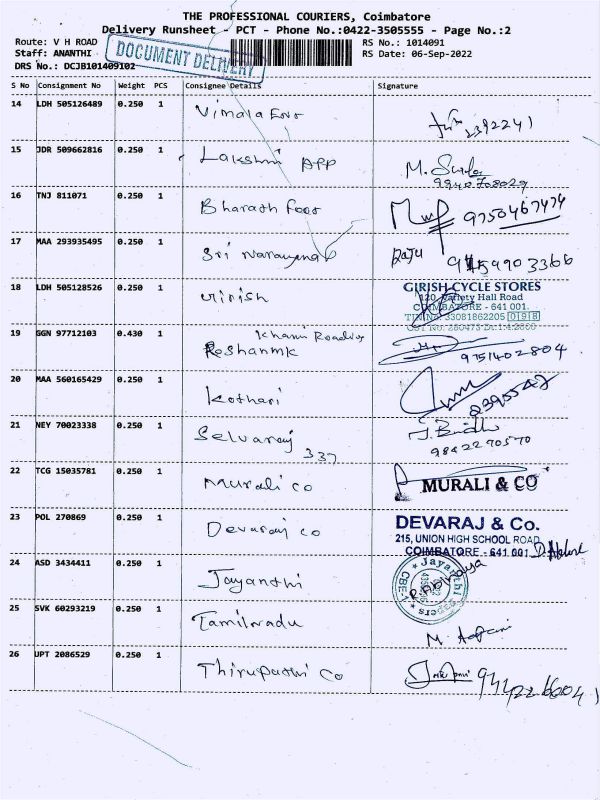 THE PROFESSIONAL COURIERS, Coimbatore
Delivery Runsheet - PCT - Phone No.:0422-3505555 - Page No.:2
Route: V H ROAD
Staff: ANANTHI
DRS No.: DCJB101409102
DOCUMENT DELIVERY
RS No.: 1014091
RS Date: 06-Sep-2022
S No Consignment No Weight PCS Consignee Details Signature
14 LDH 505126489 0.250 1 Vimala
2392241
15 JDR 509662816 0.250 1 Lakshmi App
M.
9940708029
16 TNJ 811071 0.250 1 Bharath Foot
9750467474
17 MAA 293935495 0.250 1 Sri Narayana
Raju
18 LDH 505128526 0.250 1 Girish
GIRISH CYCLE STORES
120, Variety Hall Road
COIMBATORE - 641 001.
33081862205 0918
19 GGN 97712103 0.430 1 Roshanmk
9751402804
20 MAA 560165429 0.250 1 Kothari
21 NEY 70023338 0.250 1 Selvaraj 337
9842270570
22 TCG 15035781 0.250 1 Murali co
MURALI & CO
23 POL 270869 0.250 1 Devaraj co
DEVARAJ & Co.
215, UNION HIGH SCHOOL ROAD
COIMBATORE - 641 001
24 ASD 3434411 0.250 1 Jayanthi
Jayanthi Papers
25 SVK 60293219 0.250 1 Tamilnadu
M.
26 UPT 2086529 0.250 1 Thirupathi Co